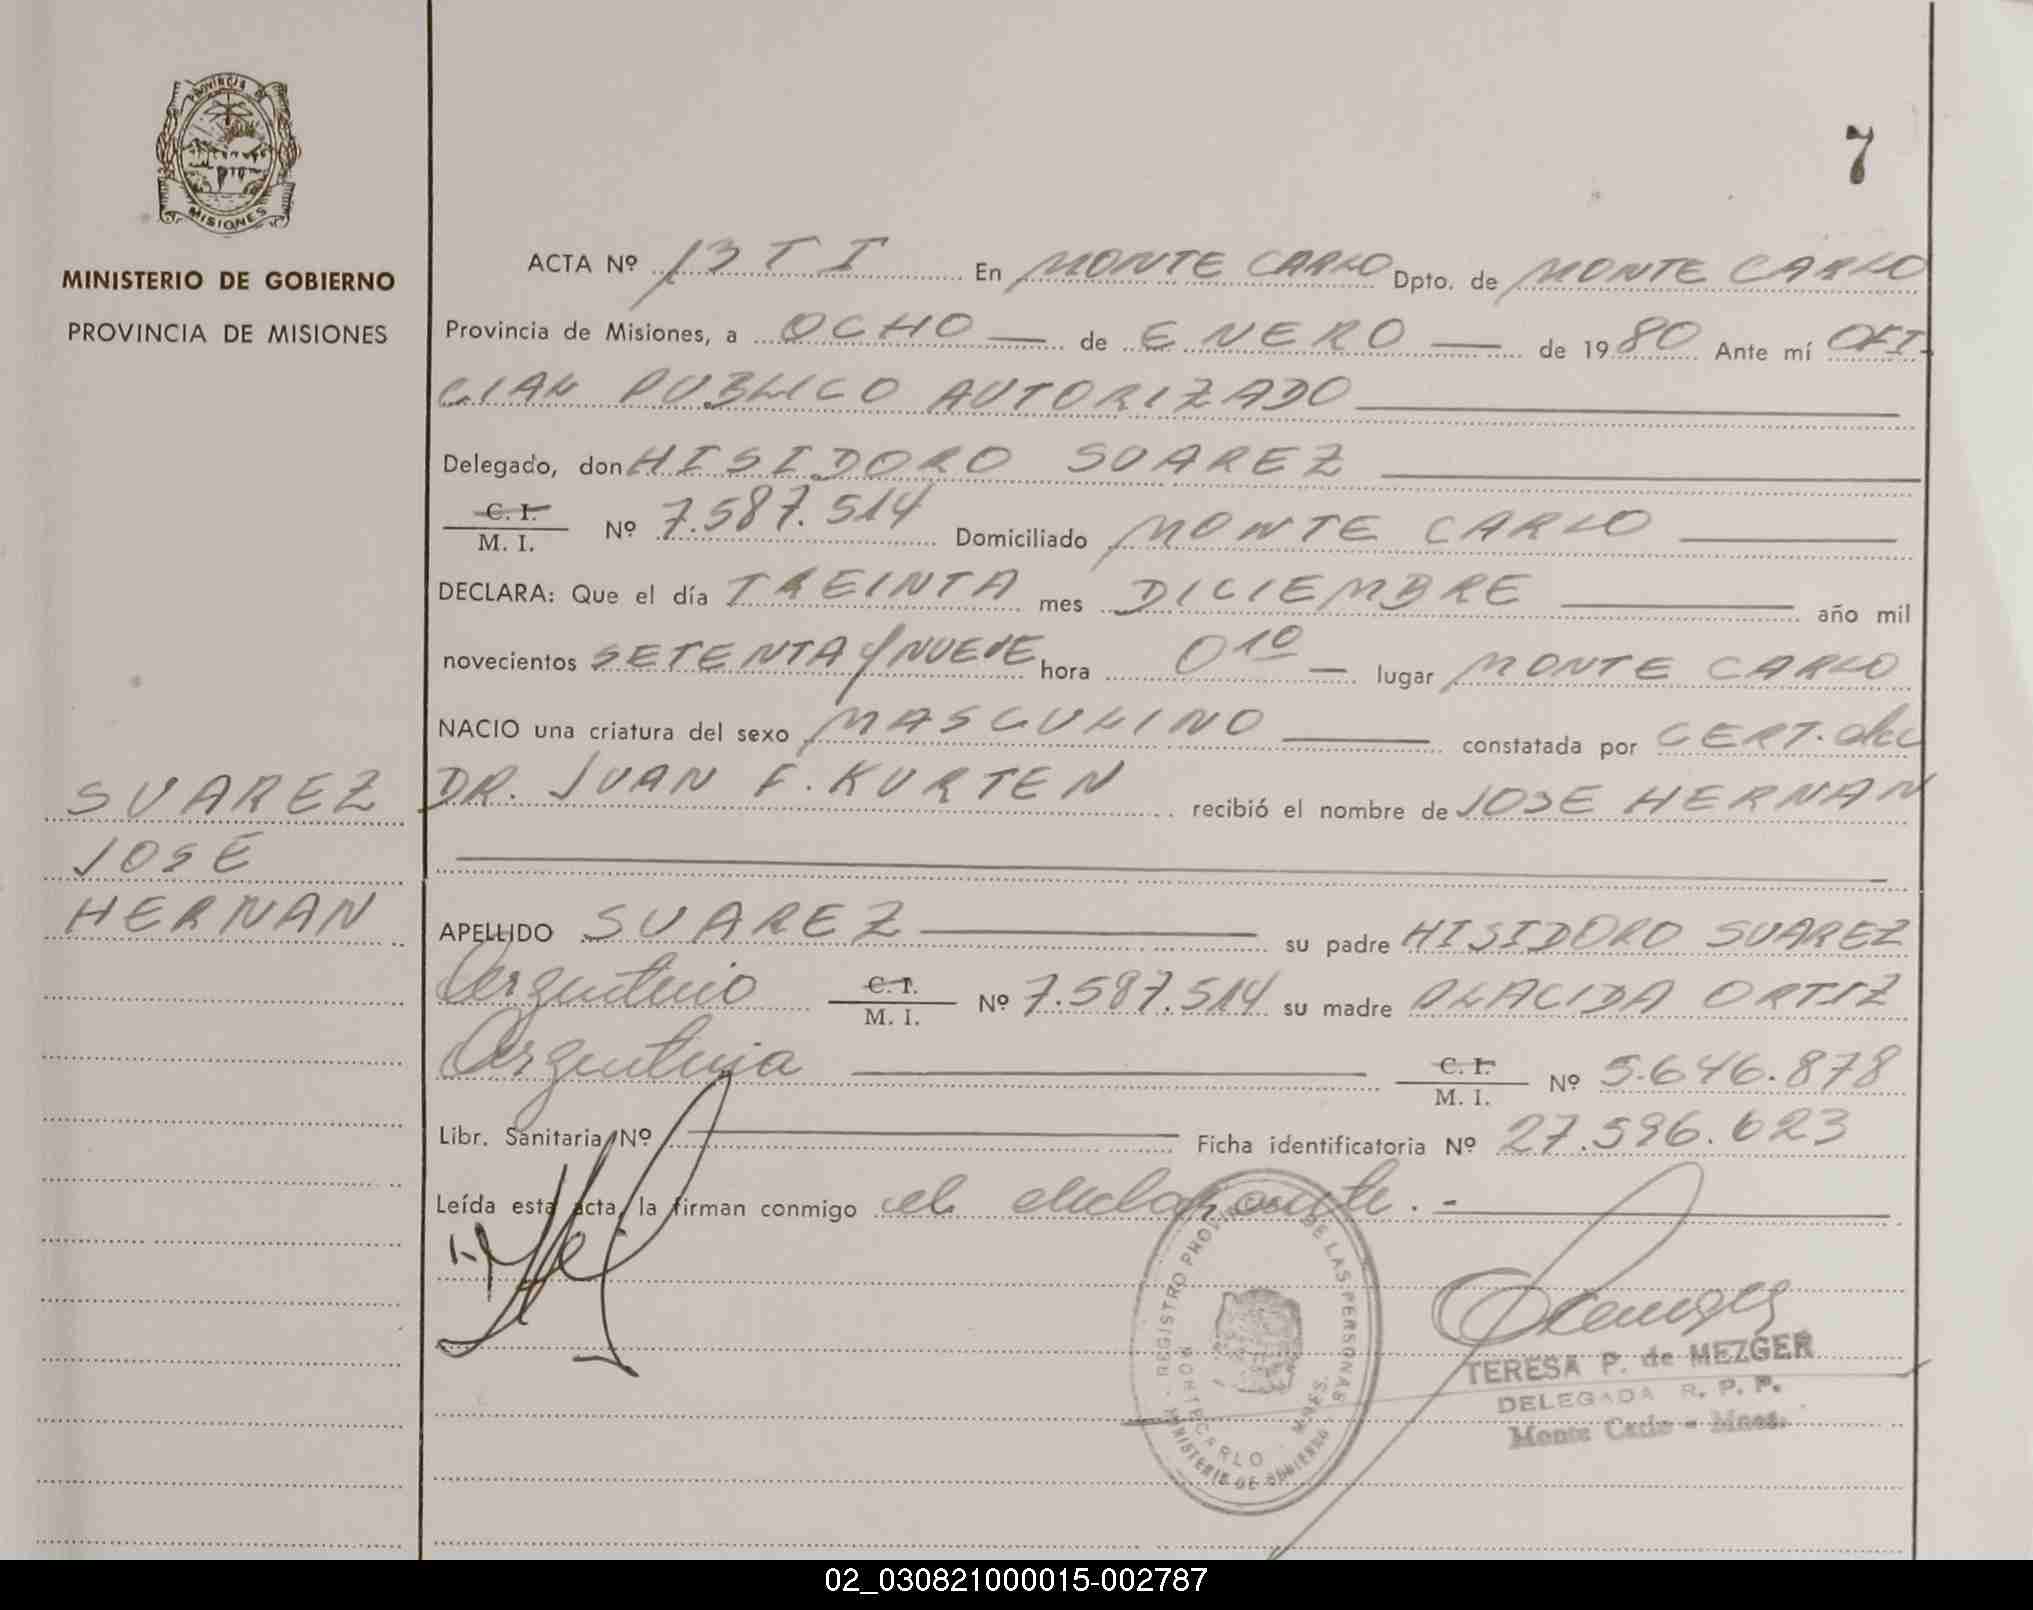 PROVINCIA DE
MISIONES
MINISTERIO DE GOBIERNO
PROVINCIA DE MISIONES
7
ACTA Nº 13 T I En MONTE CARLO Dpto. de MONTE CARLO
Provincia de Misiones, a OCHO — de ENERO — de 1980 Ante mí OFI-
CIAL PUBLICO AUTORIZADO
Delegado, don HISIDORO SUAREZ
C. I.
M. I. Nº 7.587.514 Domiciliado MONTE CARLO
DECLARA: Que el día TREINTA mes DICIEMBRE año mil
novecientos SETENTA y NUEVE hora 01º — lugar MONTE CARLO
NACIO una criatura del sexo MASCULINO constatada por CERT. del
DR. JUAN F. KURTEN recibió el nombre de JOSE HERNAN
SUAREZ
JOSÉ
HERNAN
APELLIDO SUAREZ su padre HISIDORO SUAREZ
Argentino C. I.
M. I. Nº 7.587.514 su madre ALACIDA ORTIZ
Argentina C. I.
M. I. Nº 5.646.878
Libr. Sanitaria Nº Ficha identificatoria Nº 27.596.623
Leída esta acta, la firman conmigo el declarante.-
REGISTRO PROVINCIAL DE LAS PERSONAS
MONTECARLO - MNES.
MINISTERIO DE GOBIERNO
TERESA P. de MEZGER
DELEGADA R. P. P.
Monte Carlo - Mnes.
02_030821000015-002787